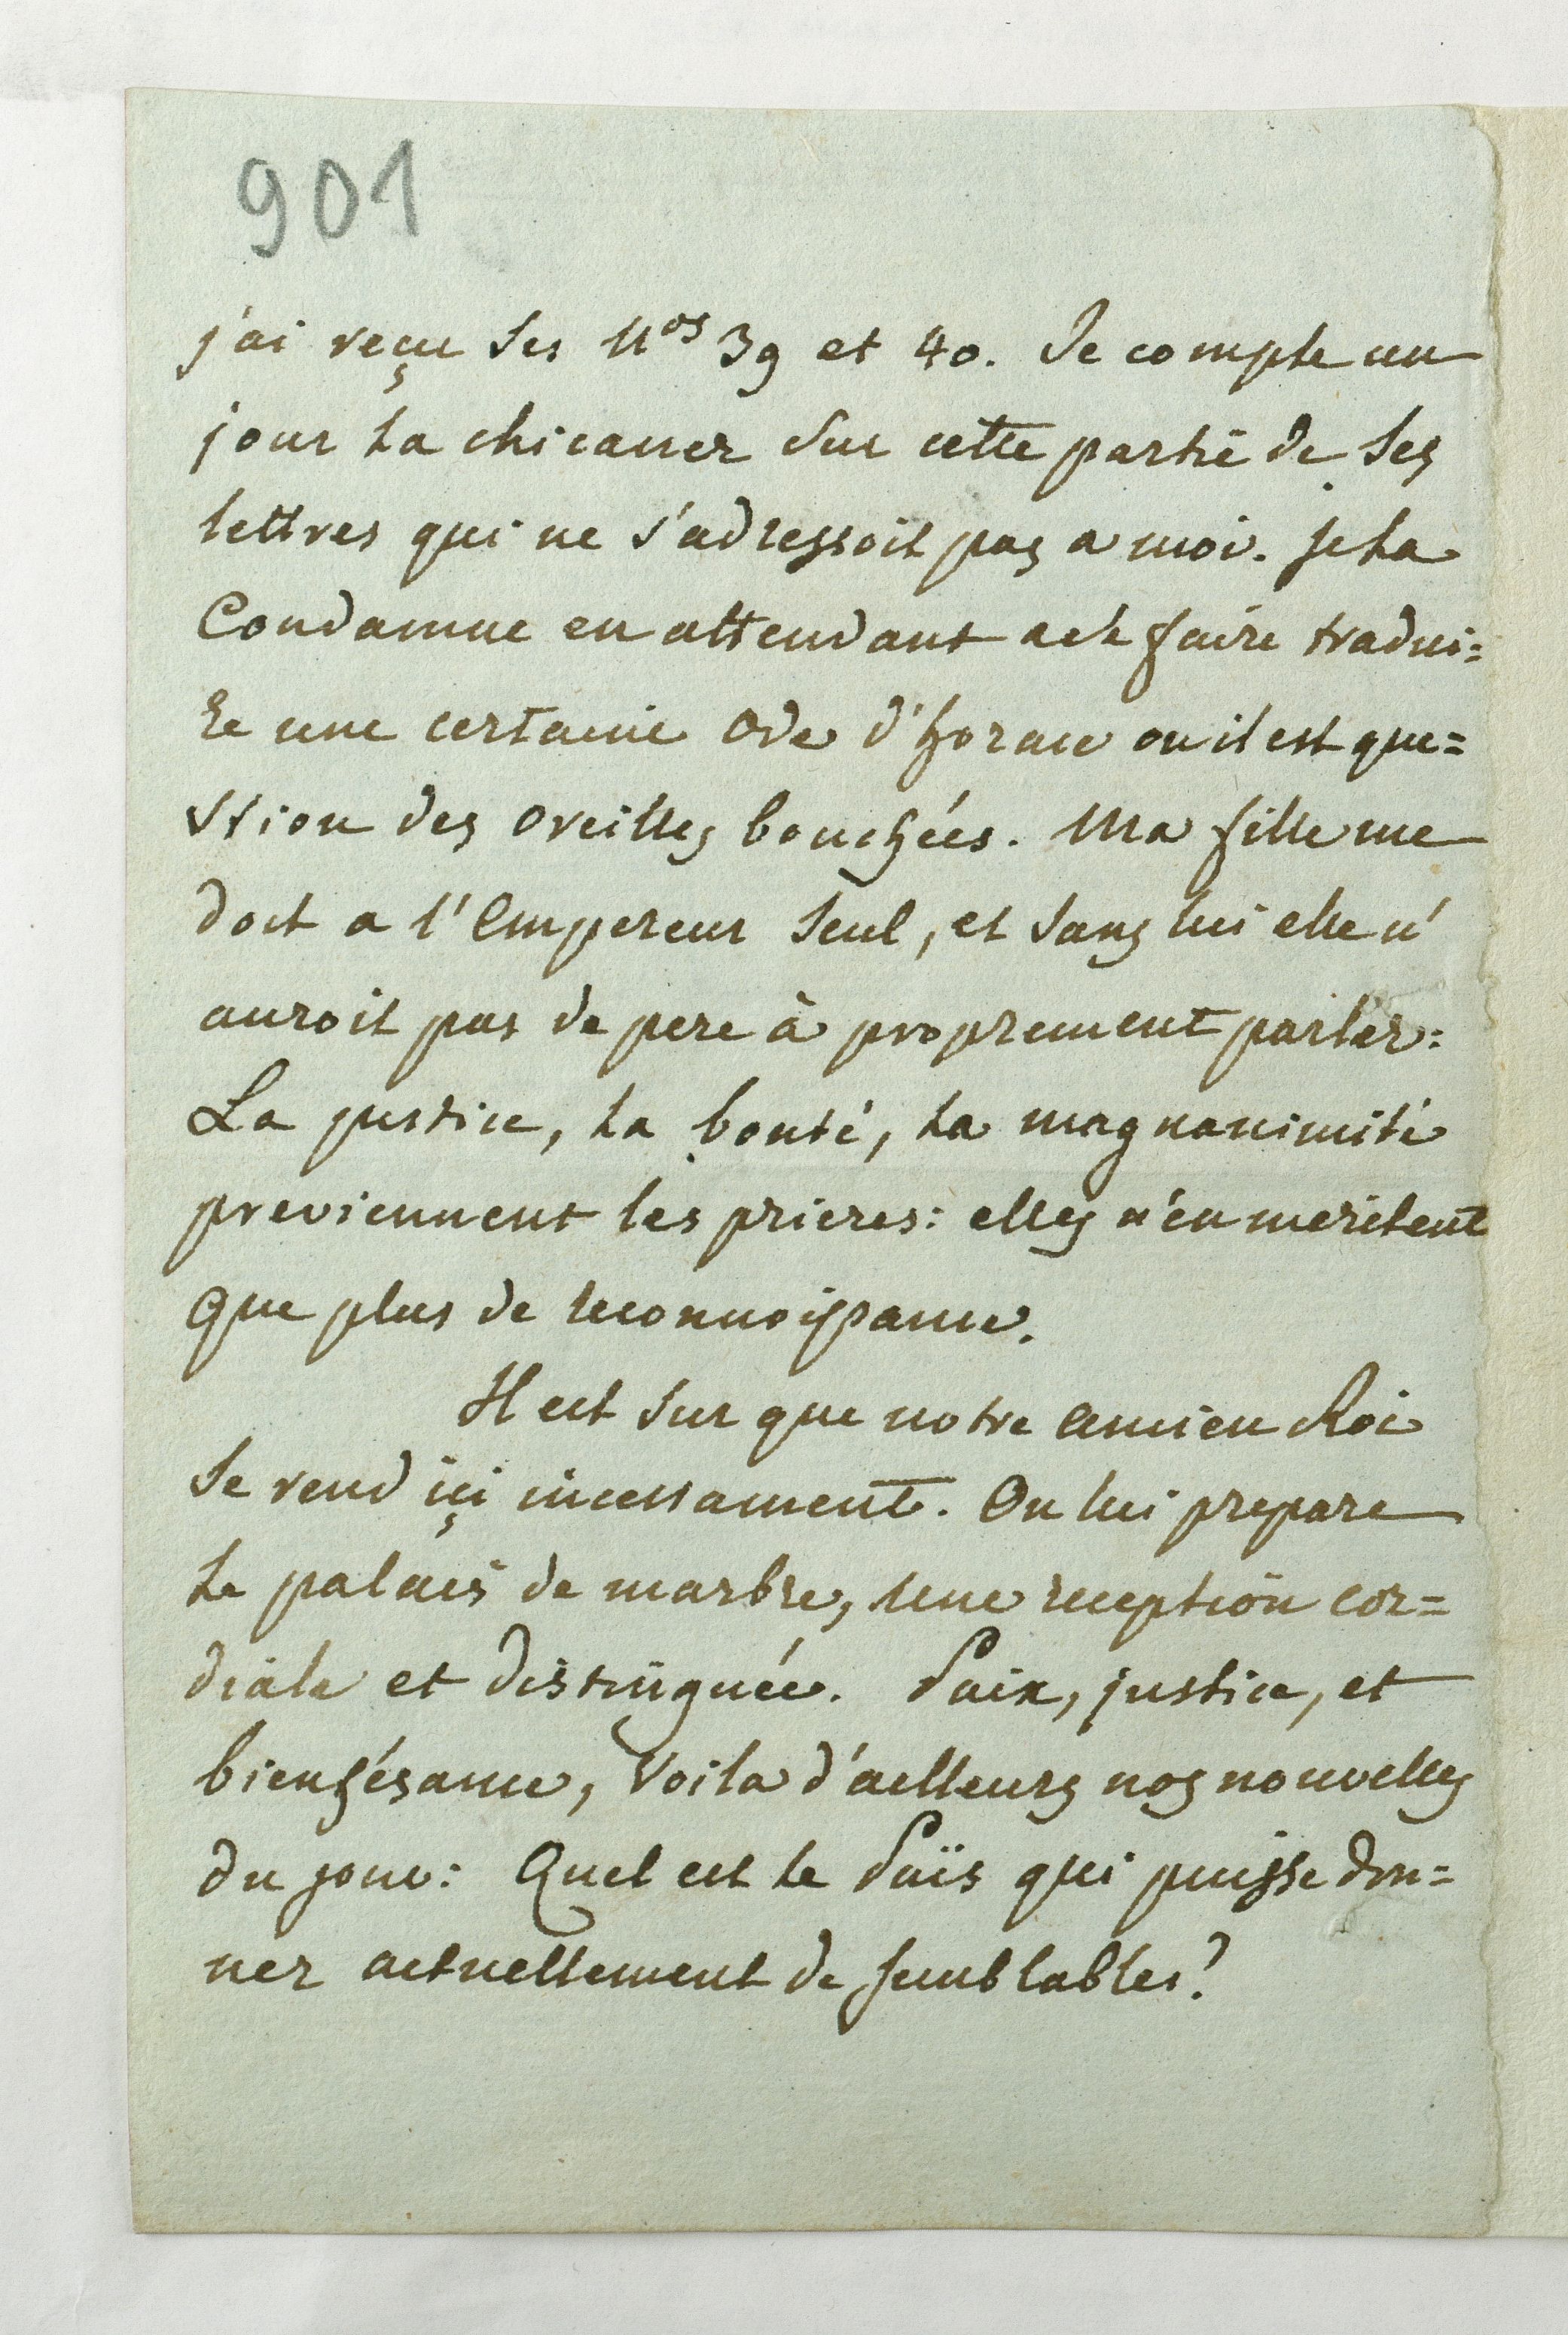 901
j'ai reçu ses Nos 39 et 40. Je compte un
jour la chicaner sur cette partie de ses
lettres qui ne s'adressoit pas a moi. Je la
Condamne en attendant a se faire tradui=
re une certaine Ode d'horace ou il est que=
stion des oreilles bouchées. Ma fille me
doit a l'Empereur seul, et sans lui elle n'
auroit pas de pere à proprement parler:
La justice, la bonté, la magnanimité
previennent les prieres: elles n'en meritent
que plus de reconnoissance.
Il est sur que notre ancien Roi
se rend içi incessament. On lui prepare
le palais de marbre, une reception cor=
diale et distinguée. Paix, justice, et
bienhésance, voila d'ailleurs nos nouvelles
du jour: Quel est le Païs qui puisse don=
ner actuellement de semblables?